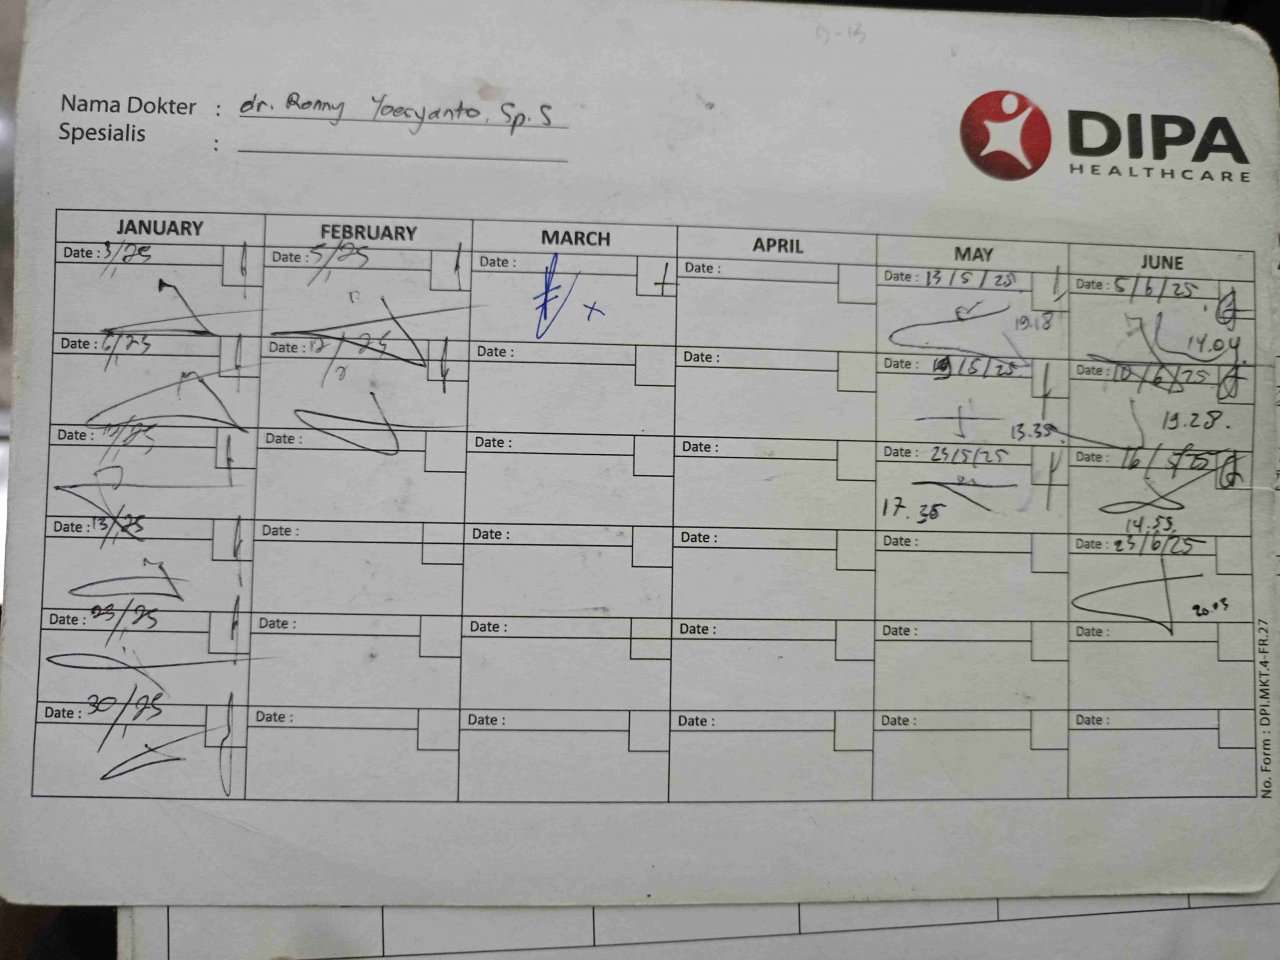 Nama Dokter : dr. Ronny Yoesyanto, Sp.S
Spesialis :
DIPA
HEALTHCARE
JANUARY FEBRUARY MARCH APRIL MAY JUNE
Date : 3/25 Date : 5/25 Date : Date : Date : 13/5/25 Date : 5/6/25
19.18 14.04
Date : 6/25 Date : 12/25 Date : Date : Date : 19/5/25 Date : 10/6/25
13.35 19.28.
Date : Date : Date : Date : Date : 23/5/25 Date : 16/5/25
17.35 14.55
Date : 13/25 Date : Date : Date : Date : Date : 23/6/25
20.03
Date : 23/25 Date : Date : Date : Date : Date :
Date : 30/25 Date : Date : Date : Date : Date :
No. Form : DPI.MKT.4-FR.27